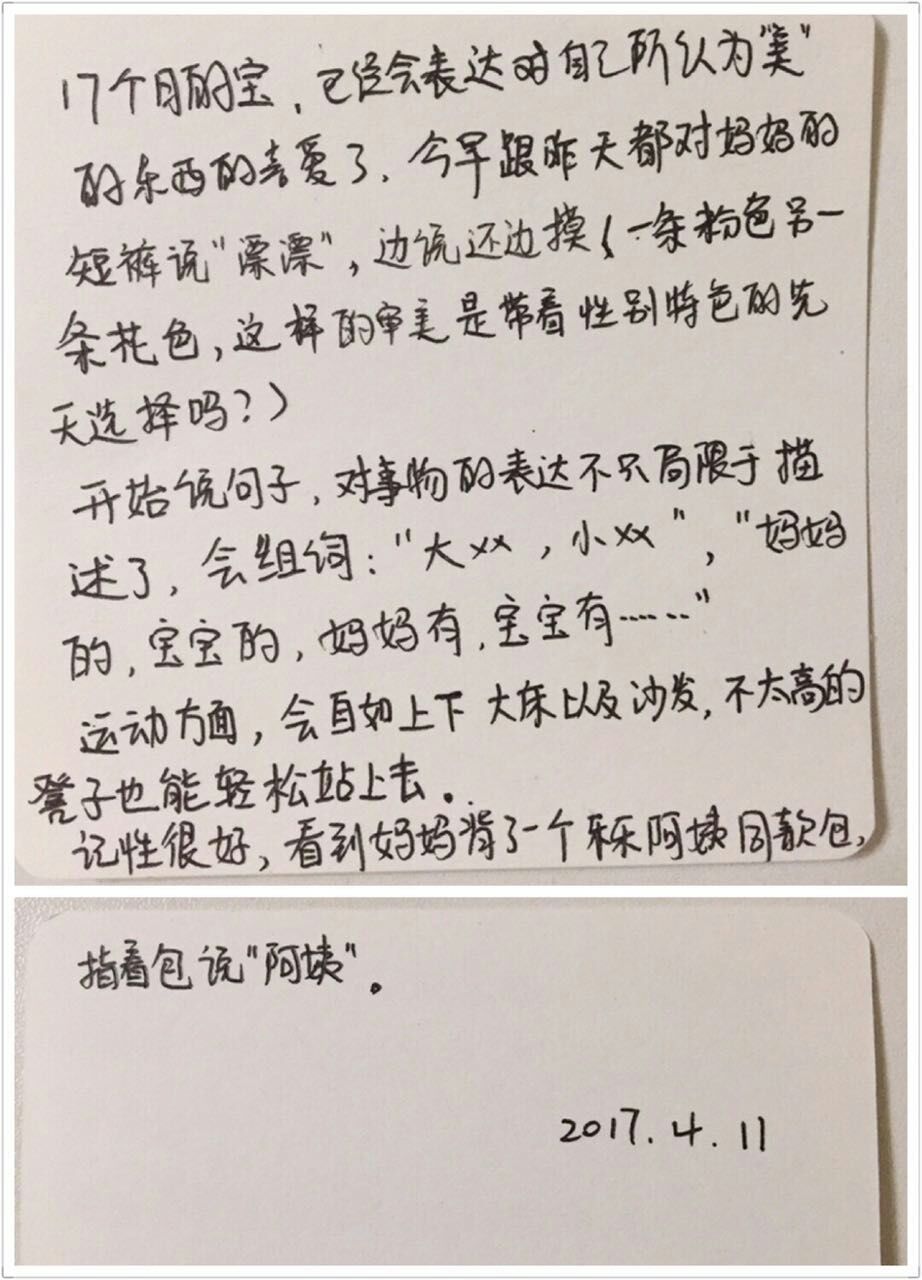 17个月的宝，已经会表达对自己所认为"美"
的东西的喜爱了，今早跟昨天都对妈妈的
短裤说"漂漂"，边说还边摸（一条粉色另一
条花色，这样的审美是带着性别特色的先
天选择吗？）
开始说句子，对事物的表达不只局限于描
述了，会组词："大××，小××"，"妈妈
的，宝宝的，妈妈有，宝宝有……"
运动方面，会自如上下大床以及沙发，不太高的
凳子也能轻松站上去。
记性很好，看到妈妈背了一个乐乐阿姨同款包，
指着包说"阿姨"。
2017.4.11